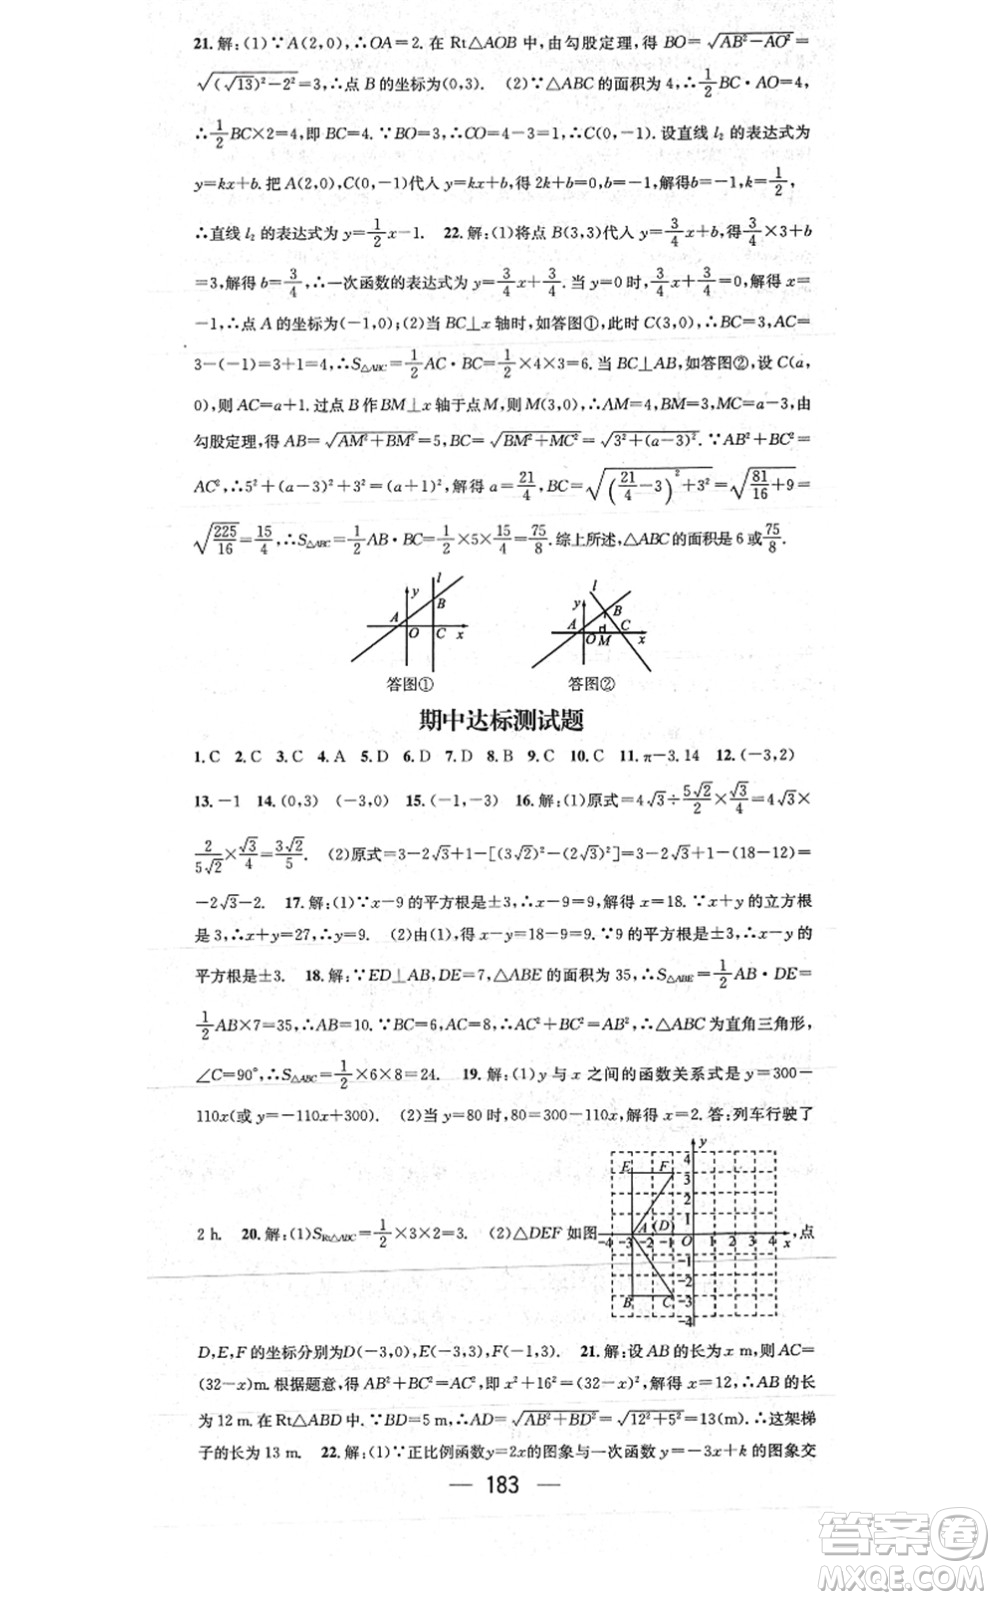 21.解:(1)∵A(2,0),∴OA=2.在Rt△AOB中,由勾股定理,得BO=√(AB²-AO²)=
√((√13)²-2²)=3,∴点B的坐标为(0,3). (2)∵△ABC的面积为4,∴1/2BC·AO=4,
∴1/2BC×2=4,即BC=4.∵BO=3,∴CO=4-3=1,∴C(0,-1).设直线l₂的表达式为
y=kx+b.把A(2,0),C(0,-1)代入y=kx+b,得2k+b=0,b=-1,解得b=-1,k=1/2,
∴直线l₂的表达式为y=1/2x-1. 22.解:(1)将点B(3,3)代入y=3/4x+b,得3/4×3+b
=3,解得b=3/4,∴一次函数的表达式为y=3/4x+3/4.当y=0时,3/4x+3/4=0,解得x=
-1,∴点A的坐标为(-1,0);(2)当BC⊥x轴时,如答图①,此时C(3,0),∴BC=3,AC=
3-(-1)=3+1=4,∴S△ABC=1/2AC·BC=1/2×4×3=6.当BC⊥AB,如答图②,设C(a,
0),则AC=a+1.过点B作BM⊥x轴于点M,则M(3,0),∴AM=4,BM=3,MC=a-3,由
勾股定理,得AB=√(AM²+BM²)=5,BC=√(BM²+MC²)=√(3²+(a-3)²).∵AB²+BC²=
AC²,∴5²+(a-3)²+3²=(a+1)²,解得a=21/4,BC=√((21/4-3)²+3²)=√(81/16+9)=
√(225/16)=15/4,∴S△ABC=1/2AB·BC=1/2×5×15/4=75/8.综上所述,△ABC的面积是6或75/8.
y l A B O C x
l y A B O M C x
答图① 答图②
期中达标测试题
1.C 2.C 3.C 4.A 5.D 6.D 7.D 8.B 9.C 10.C 11.π-3.14 12.(-3,2)
13.-1 14.(0,3) (-3,0) 15.(-1,-3) 16.解:(1)原式=4√3÷5√2/2×√3/4=4√3×
2/5√2×√3/4=3√2/5. (2)原式=3-2√3+1-[(3√2)²-(2√3)²]=3-2√3+1-(18-12)=
-2√3-2. 17.解:(1)∵x-9的平方根是±3,∴x-9=9,解得x=18.∵x+y的立方根
是3,∴x+y=27,∴y=9. (2)由(1),得x-y=18-9=9.∵9的平方根是±3,∴x-y的
平方根是±3. 18.解:∵ED⊥AB,DE=7,△ABE的面积为35,∴S△ABE=1/2AB·DE=
1/2AB×7=35,∴AB=10.∵BC=6,AC=8,∴AC²+BC²=AB²,∴△ABC为直角三角形,
∠C=90°,∴S△ABC=1/2×6×8=24. 19.解:(1)y与x之间的函数关系式是y=300-
110x(或y=-110x+300). (2)当y=80时,80=300-110x,解得x=2.答:列车行驶了
2 h. 20.解:(1)SRt△ABC=1/2×3×2=3. (2)△DEF如图 ,点
y E F 4 3 2 1 A (D) -4 -3 -2 -1 O 1 2 3 4 x -1 -2 -3 -4 B C
D,E,F的坐标分别为D(-3,0),E(-3,3),F(-1,3). 21.解:设AB的长为x m,则AC=
(32-x)m.根据题意,得AB²+BC²=AC²,即x²+16²=(32-x)²,解得x=12,∴AB的长
为12 m.在Rt△ABD中.∵BD=5 m,∴AD=√(AB²+BD²)=√(12²+5²)=13(m).∴这架梯
子的长为13 m. 22.解:(1)∵正比例函数y=2x的图象与一次函数y=-3x+k的图象交
— 183 —
答案卷
MXQE.COM